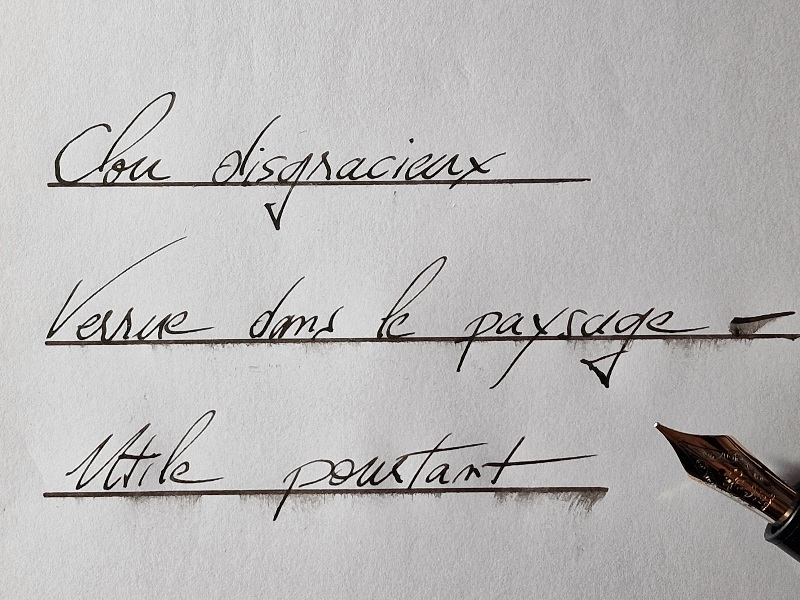 Clou disgracieux
Verrue dans le paysage –
Utile pourtant